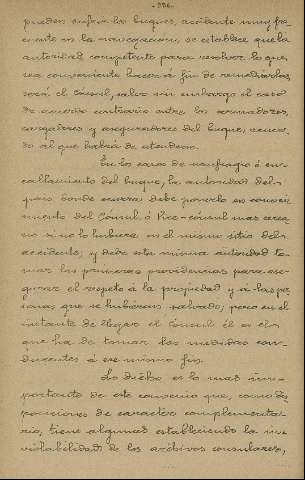 - 336 -
pueden sufrir los buques, accidente muy fre
cuente en la navegacion, se establece que la
autoridad competente para resolver lo que
sea conveniente hacer á fin de remediarlas
será el Cónsul, salvo sin embargo el caso
de acuerdo contrario entre los armadores,
cargadores y aseguradores del buque, acuer
do al que habrá de atenderse.
En los casos de naufragio ó en-
callamiento del buque, la autoridad del
pais donde ocurra debe ponerlo en conoci
miento del Cónsul ó Vice-cónsul mas cerca
no si no lo hubiere en el mismo sitio del
accidente; y debe esta misma autoridad to-
mar las primeras providencias para ase-
gurar el respeto á la propiedad y á las per
sonas que se hubieran salvado; pero en el
instante de llegar el Cónsul él es el
que ha de tomar las medidas con-
ducentes á ese mismo fin.
Lo dicho es lo mas im-
portante de este convenio que, como dis
posiciones de caracter complementa-
rio, tiene algunas estableciendo la in-
violabilidad de los archivos consulares,